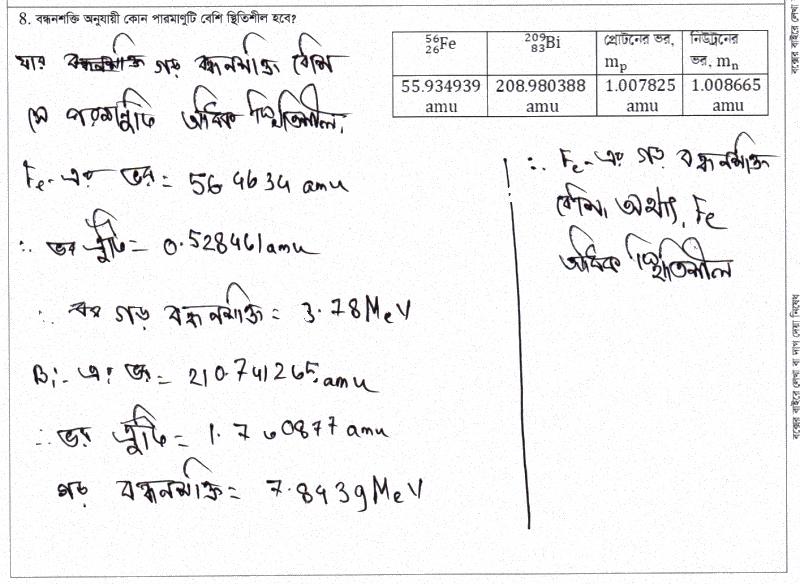 8. বন্ধনশক্তি অনুযায়ী কোন পারমাণুটি বেশি স্থিতিশীল হবে?
⁵⁶₂₆Fe ²⁰⁹₈₃Bi প্রোটনের ভর, mₚ নিউট্রনের ভর, mₙ
55.934939 amu 208.980388 amu 1.007825 amu 1.008665 amu
যার গড় বন্ধনশক্তি বেশি
সে পরমাণুটি অধিক স্থিতিশীল,
Fe-এর ভর = 56 4634 amu
∴ ভর ত্রুটি = 0.528461amu
∴ গড় বন্ধনশক্তি = 3.78MeV
Bi-এর ভর = 210.741265 amu
∴ ভর ত্রুটি = 1.760877 amu
গড় বন্ধনশক্তি = 7.8439MeV
∴ Fe-এর গড় বন্ধনশক্তি
বেশি। অর্থাৎ, Fe
অধিক স্থিতিশীল
বক্সের বাইরে লেখা বা দাগ দেয়া নিষেধ
বক্সের বাইরে লেখা